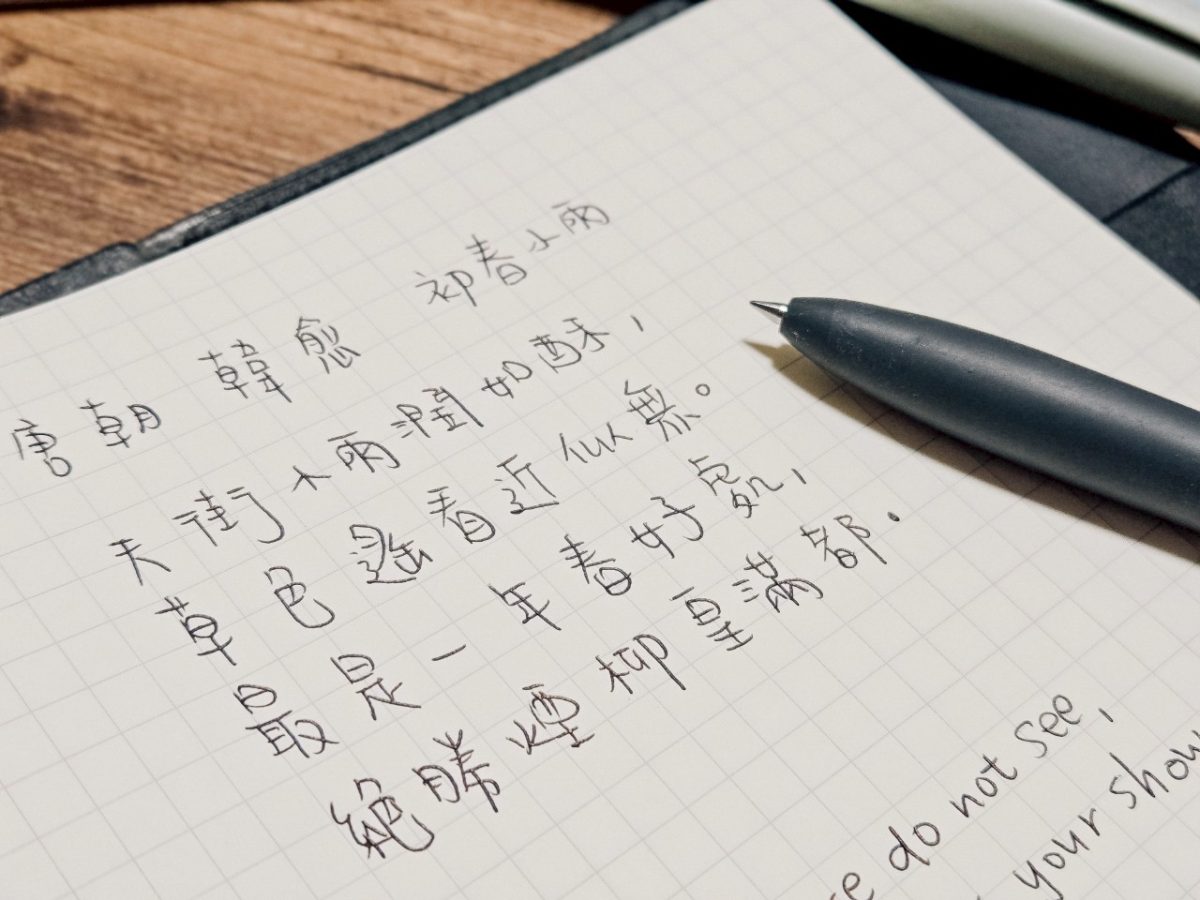 唐朝 韓愈 初春小雨
天街小雨潤如酥，
草色遙看近似無。
最是一年春好處，
絕勝煙柳皇滿都.
do not see,
your